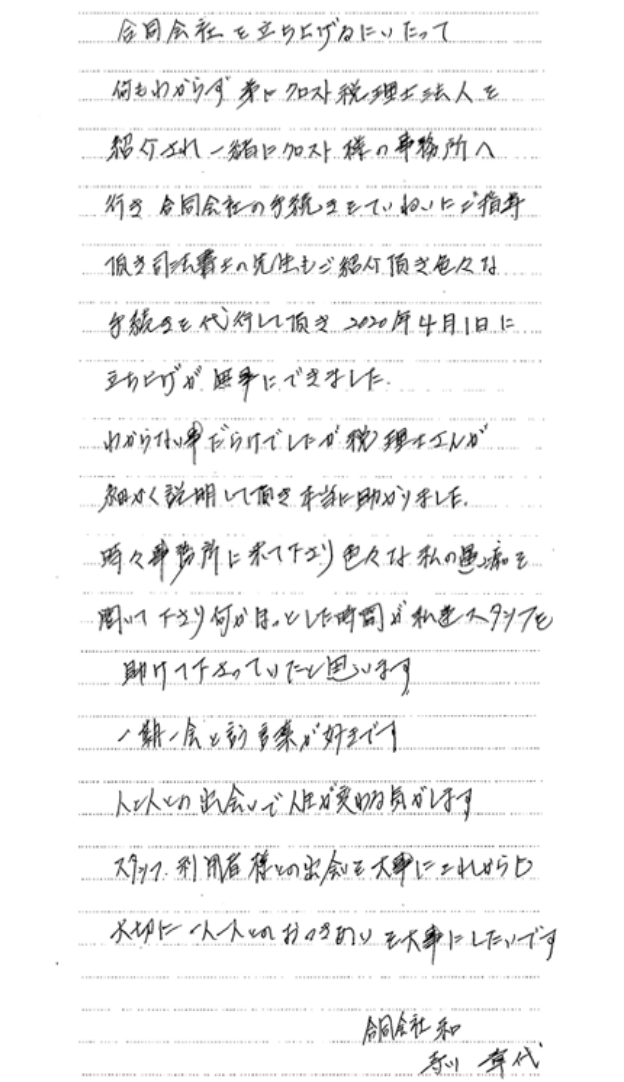 合同会社を立ち上げるにいたって
何もわからず 弟にクロスト税理士法人を
紹介され一緒にクロスト様の事務所へ
行き 合同会社の手続きをていねいにご指導
頂き司法書士の先生もご紹介頂き色々な
手続きを代行して頂き 2020年4月1日に
立ち上げが無事にできました.
わからない事だらけでしたが税理士さんが
細かく説明して頂き本当に助かりました.
時々事務所に来て下さり色々な私の愚痴を
聞いて下さり何かほっとした時間が私達スタッフを
助けて下さっていたと思います
一期一会と言う言葉が好きです
人と人との出会いで人生が変わる気がします
スタッフ.利用者様との出会いを大事にこれからも
大切に一人一人とのおつきあいを大事にしたいです
合同会社 和
代